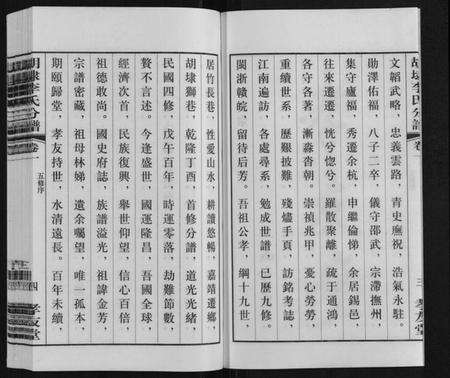 文韜武略，忠義雲路，青史廡祝，浩氣永駐。
勛澤佑福，八子二卒，儀守邵武，宗滯撫州，
集守廬福，秀遷余杭，申繼倫悌，余居錫邑，
往來遷遷，恍兮惚兮。羅散聚離，疏于通鴻，
各守各著，漸淼沓朝。崇禎兆甲，憂心勞勞，
重續世系，歷艱披難，殘燼手頁，訪銘考誌，
江南遍訪，各處尋系，勉成世譜，已歷九修。
閩浙贛皖，留待后芳。吾祖公孝，綱十九世，
胡埭李氏分譜
卷
孝友堂
居竹長巷，性愛山水，耕讀悠暢，嘉靖遷鄉，
胡埭獅巷，乾隆丁酉，首修分譜，道光光緒，
民國四修，戊午百年，時運零落，劫難節數，
贅不言述。今逢盛世，國運隆昌，吾國全球，
經濟次首，民族復興，舉世仰望，信心百倍，
祖德敢尚。國史府誌，族譜溢光，祖諱金芳，
宗譜密藏，祖母林娣，遺余囑望，唯一孤本，
期頤歸堂，孝友持世，水清遠長。百年未續，
胡埭李氏分譜
卷一
五修序
四
孝友堂